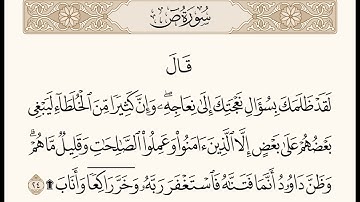 سُورَةُ صٓ
قَالَ
لَقَدۡ ظَلَمَكَ بِسُؤَالِ نَعۡجَتِكَ إِلَىٰ نِعَاجِهِۦۖ وَإِنَّ كَثِيرٗا مِّنَ ٱلۡخُلَطَآءِ لَيَبۡغِي
بَعۡضُهُمۡ عَلَىٰ بَعۡضٍ إِلَّا ٱلَّذِينَ ءَامَنُواْ وَعَمِلُواْ ٱلصَّٰلِحَٰتِ وَقَلِيلٞ مَّا هُمۡۗ
وَظَنَّ دَاوُۥدُ أَنَّمَا فَتَنَّٰهُ فَٱسۡتَغۡفَرَ رَبَّهُۥ وَخَرَّۤ رَاكِعٗاۤ وَأَنَابَ۩ ٢٤